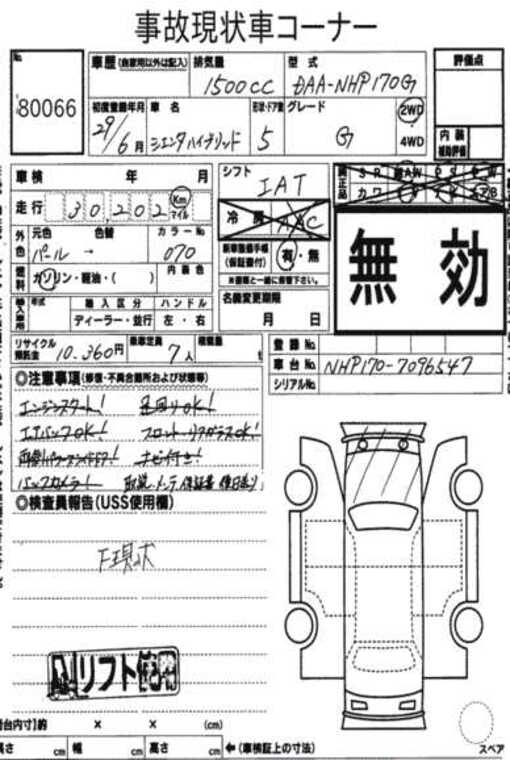 事故現状車コーナー
No. 80066
車歴(自家用以外は記入) 排気量 1500CC 型式 DAA-NHP170G 評価点
初度登録年月 29/6月 車名 シエンタハイブリッド 形状・ドア数 5 グレード G 2WD・4WD 内装補助評価
車検 年 月 シフト IAT 純正品 SR AW PS PW
走行 30,202 Km マイル 冷房 AAC カワ エアB
外色 元色 パール 色替 → カラーNo. 070 新車整備手帳(保証書付) 有・無
無効
燃料 ガソリン・軽油・( ) 内装色 ※書類と一緒に発書下さい。
輸入車用 年式 輸入区分 ディーラー・並行 ハンドル 左・右 名義変更期限 月 日
リサイクル預託金 10,360円 乗車定員 7人 積載量 t 登録No.
車台No. NHP170-7096547
シリアルNo.
◎注意事項(修復・不具合箇所および状態等)
エンジンスタート! 足回りOK!
エアバックOK! フロント・リアガラスOK!
両側パワースライドドア! ナビ付き!
バックカメラ! 取説・メンテ・保証書 後日送り
◎検査員報告(USS使用欄)
下現状
リフト使用
荷台内寸】約 × × (cm)
長さ cm 幅 cm 高さ cm ←(車検証上の寸法)
スペア